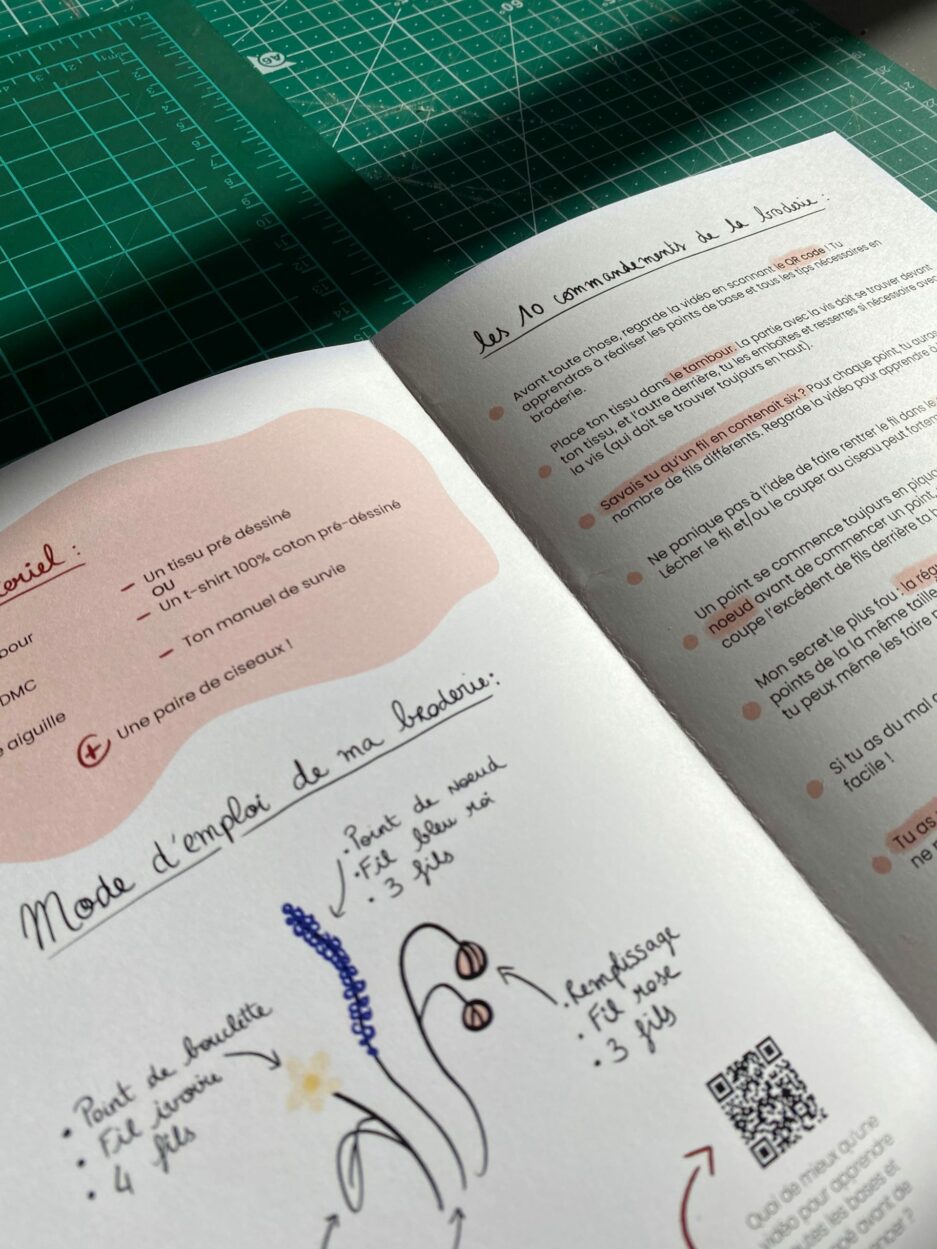 les 10 commandements de la broderie :
Avant toute chose, regarde la vidéo en scannant le QR code ! Tu
apprendras à réaliser les points de base et tous les tips nécessaires en
broderie.
Place ton tissu dans le tambour. La partie avec la vis doit se trouver devant
ton tissu, et l'autre derrière, tu les emboites et resserres si nécessaire avec
la vis (qui doit se trouver toujours en haut).
Savais tu qu'un fil en contenait six ? Pour chaque point, tu auras
nombre de fils différents. Regarde la vidéo pour apprendre à
Ne panique pas à l'idée de faire rentrer le fil dans le
Lécher le fil et/ou le couper au ciseau peut fortem
Un point se commence toujours en piqua
noeud avant de commencer un point,
coupe l'excédent de fils derrière ta b
Mon secret le plus fou : la régu
points de la la même taille
tu peux même les faire
Si tu as du mal
facile !
Tu as
ne
eriel :
bour
DMC
aiguille
– Un tissu pré déssiné
OU
– Un t-shirt 100% coton pré-déssiné
– Ton manuel de survie
+ Une paire de ciseaux !
Mode d'emploi de ma broderie :
• Point de noeud
• Fil bleu roi
• 3 fils
• Remplissage
• Fil rose
• 3 fils
• Point de bouclette
• Fil ivoire
• 4 fils
Quoi de mieux qu'une
vidéo pour apprendre
toutes les bases et
avant de